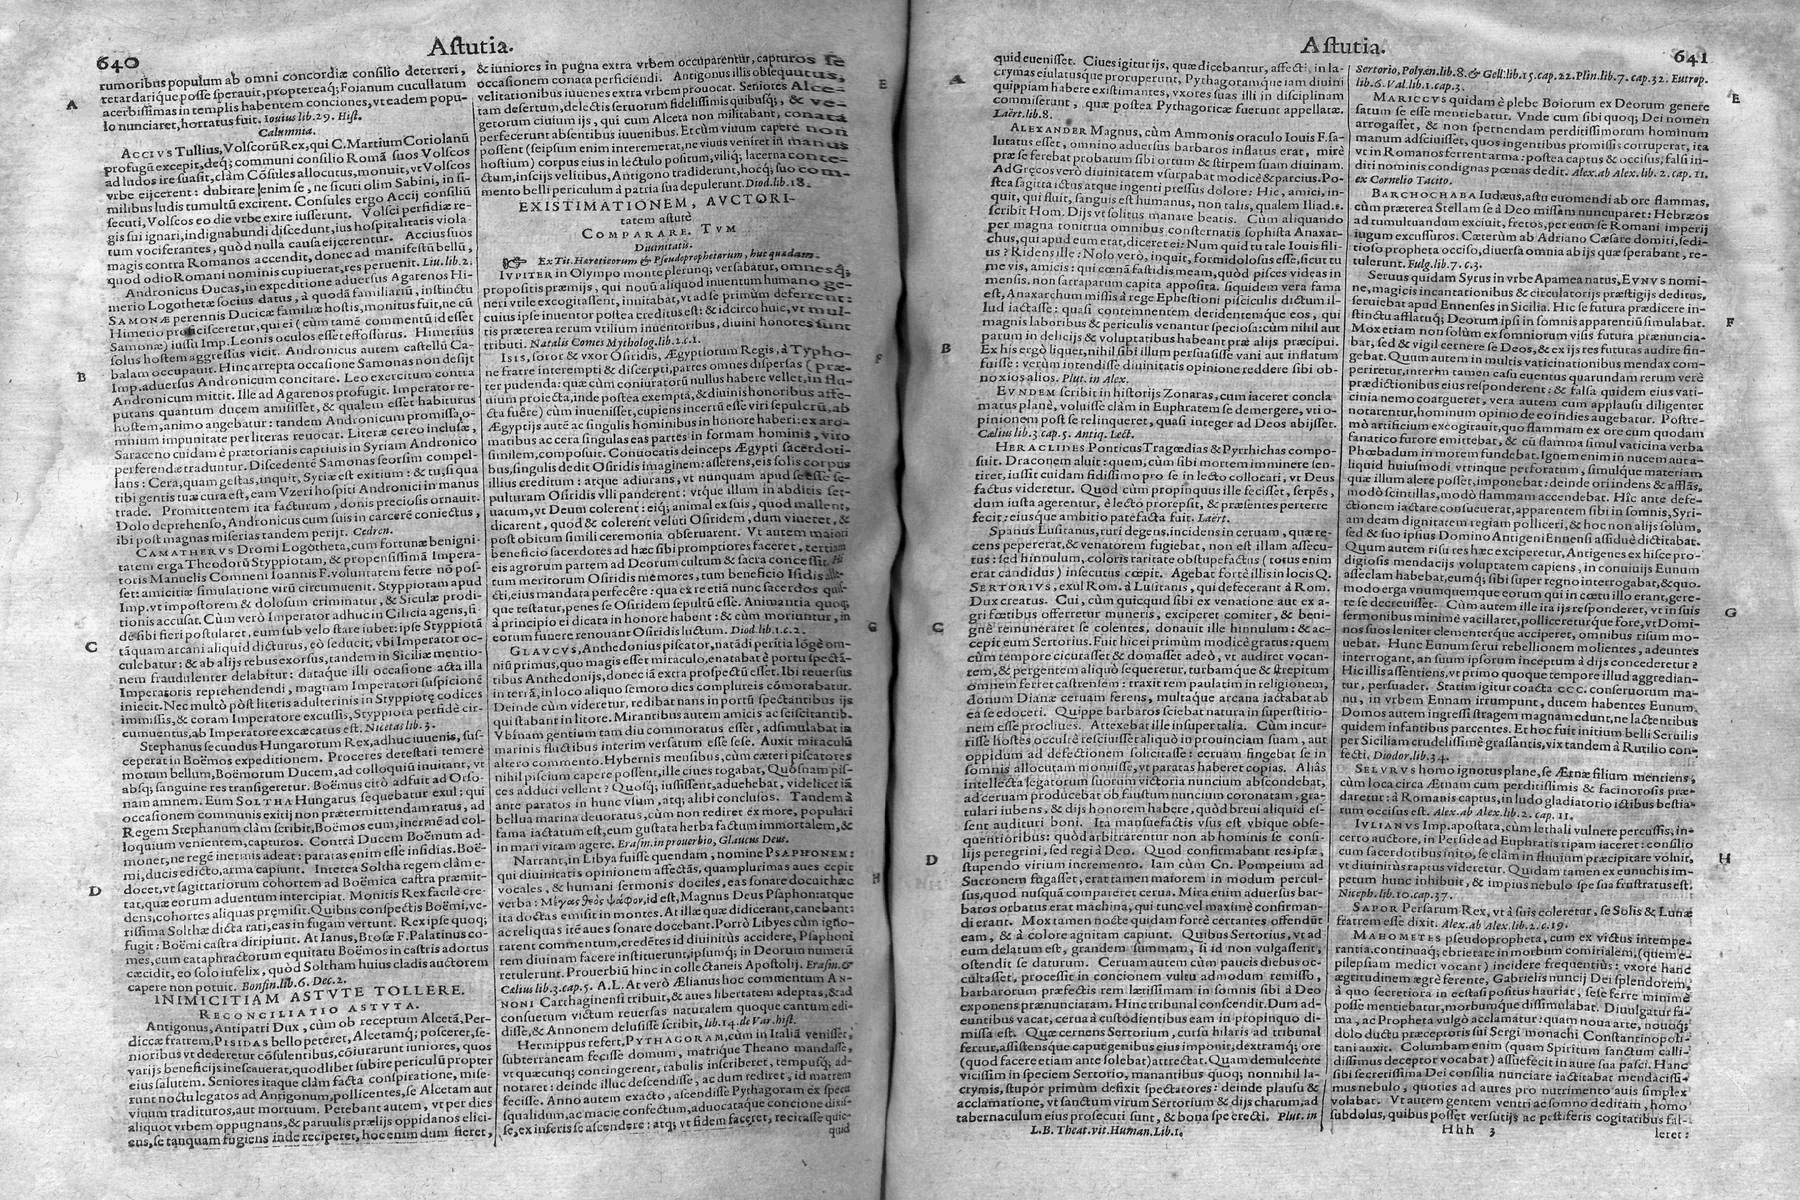 640
Astutia.
rumoribus populum ab omni concordiæ consilio deterreri,
retardariq́ue posse sperauit, proptereaq́; Foianum cucullatum
acerbissimas in templis habentem conciones, vt eadem popu-
lo nunciaret, hortatus fuit. Iouius lib. 29. Hist.
Calumnia.
ACCIVS Tullius, Volscorũ Rex, qui C. Martium Coriolanũ
profugũ excepit, deq́; communi consilio Romã suos Volscos
ad ludos ire suasit, clàm Cõsules allocutus, monuit, vt Volscos
vrbe eijcerent: dubitare enim se, ne sicuti olim Sabini, in si-
milibus ludis tumultũ excirent. Consules ergo Accij consiliũ
secuti, Volscos eo die vrbe exire iusserunt. Volsci perfidiæ re-
gis sui ignari, indignabundi discedunt, ius hospitalitatis viola-
tum vociferantes, quòd nulla causa eijcerentur. Accius suos
magis contra Romanos accendit, donec ad manifestũ bellũ,
quod odio Romani nominis cupiuerat, res peruenit. Liu. lib. 2.
Andronicus Ducas, in expeditione aduersus Agarenos Hi-
merio Logothetæ socius datus, à quodã familiariũ, instinctu
SAMONÆ perennis Ducicæ familiæ hostis, monitus fuit, ne cũ
Himerio proficisceretur, qui ei (cùm tamē commentũ id esset
Samonæ) iussu Imp. Leonis oculos esset effossurus. Himerius
solus hostem aggressus vicit. Andronicus autem castellũ Ca-
balam occupauit. Hinc arrepta occasione Samonas non desijt
Imp. aduersus Andronicum concitare. Leo exercitum contra
Andronicum mittit. Ille ad Agarenos profugit. Imperator re-
putans quantum ducem amisisset, & qualem esset habiturus
hostem, animo angebatur: tandem Andronicum promissa, o-
mnium impunitate per literas reuocat. Literæ cereo inclusæ,
Saraceno cuidam è prætorianis captiuis in Syriam Andronico
perferendæ traduntur. Discedentē Samonas seorsim compel-
lans: Cera, quam gestas, inquit, Syriæ est exitium: & tu, si qua
tibi gentis tuæ cura est, eam Vzeri hospiti Andronici in manus
trade. Promittentem ita facturum, donis preciosis ornauit.
Dolo deprehenso, Andronicus cum suis in carcerē coniectus,
ibi post magnas miserias tandem perijt. Cedren.
CAMATHERVS Dromi Logotheta, cum fortunæ benigni-
tatem erga Theodorũ Styppiotam, & propensissimã Impera-
toris Manuelis Comneni Ioannis F. voluntatem ferre nõ pos-
set: amicitiæ simulatione virũ circumuenit. Styppiotam apud
Imp. vt impostorem & dolosum criminatur, & Siculæ prodi-
tionis accusat. Cùm verò Imperator adhuc in Cilicia agens, fi-
dē sibi fieri postularet, eum sub velo stare iubet: ipse Styppiotã
tãquam arcani aliquid dicturus, eò seducit, vbi Imperator oc-
culebatur: & ab alijs rebus exorsus, tandem in Siciliæ mentio-
nem fraudulenter delabitur: dataque illi occasione acta illa
Imperatoris reprehendendi, magnam Imperatori suspicionē
iniecit. Nec multò pòst literis adulterinis in Styppiotę codices
immissis, & coram Imperatore excussis, Styppiota perfidè cir-
cumuentus, ab Imperatore excæcatus est. Nicetas lib. 3.
Stephanus secundus Hungarorum Rex, adhuc iuuenis, sus-
ceperat in Boëmos expeditionem. Proceres detestati temerè
motum bellum, Boëmorum Ducem, ad colloquiũ inuitant, vt
absq́; sanguine res transigeretur. Boëmus citò adfuit ad Orso-
nam amnem. Eum SOLTHA Hungatus sequebatur exul: qui
occasionem communis exitij non prætermittendam ratus, ad
Regem Stephanum clàm scribit, Boëmos eum, inermē ad col-
loquium venientem, capturos. Contrà Ducem Boëmum ad-
monet, ne regē inermis adeat: paratas enim esse insidias. Boë-
mi, ducis edicto, arma capiunt. Interea Soltha regem clàm e-
docet, vt sagittariorum cohortem ad Boëmica castra præmit-
tat, quæ eorum aduentum intercipiat. Monitis Rex facilè cre-
dens, cohortes aliquas pręmisit. Quibus conspectis Boëmi, ve-
rissima Solthæ dicta rati, eas in fugam vertunt. Rex ipse quoq́;
fugit: Boëmi castra diripiunt. At Ianus, Brosæ F. Palatinus co-
mes, cum cataphractorum equitatu Boëmos in castris adortus
cæcidit, eo solo infelix, quòd Soltham huius cladis auctorem
capere non potuit. Bonfin. lib. 6. Dec. 2.
INIMICITIAM ASTVTE TOLLERE.
RECONCILIATIO ASTVTA.
Antigonus, Antipatri Dux, cùm ob receptum Alcetã, Per-
diccæ fratrem, PISIDAS bello peteret, Alcetamq́; posceret, se-
nioribus vt dederetur cõsulentibus, cõiurarunt iuniores, quos
varijs beneficijs inescauerat, quodlibet subire periculũ propter
eius salutem. Seniores itaque clàm facta conspiratione, mise-
runt noctu legatos ad Antigonum, pollicentes, se Alcetam aut
viuum tradituros, aut mortuum. Petebant autem, vt per dies
aliquot vrbem oppugnans, & paruulis prælijs oppidanos elici-
ens, se tanquam fugiens inde reciperet, hoc enim dum fieret,
& iuniores in pugna extra vrbem occuparentur, capturos se
occasionem conata perficiendi. Antigonus illis obsequutus,
velitationibus iuuenes extra vrbem prouocat. Seniores Alce-
tam desertum, delectis seruorum fidelissimis quibusq́;, & ve-
getorum ciuium ijs, qui cum Alceta non militabant, conata
perfecerunt absentibus iuuenibus. Et cùm viuum capere non
possent (seipsum enim interemerat, ne viuus veniret in manus
hostium) corpus eius in lectulo positum, viliq́; lacerna conte-
ctum, inscijs velitibus, Antigono tradiderunt, hocq́; suo com-
mento belli periculum à patria sua depulerunt. Diod. lib. 18.
EXISTIMATIONEM, AVCTORI-
tatem astutè
COMPARARE. TVM
Diuinitatis.
☞ Ex Tit. Hæreticorum & Pseudoprophetarum, huc quadam.
IVPITER in Olympo monte plerunq́; versabatur, omnesq́;
propositis præmijs, qui nouũ aliquod inuentum humano ge-
neri vtile excogitassent, inuitabat, vt ad se primùm deferrent:
cuius ipse inuentor postea creditus est: & idcirco huic, vt mul-
tis præterea rerum vtilium inuentoribus, diuini honores sunt
tributi. Natalis Comes Mytholog. lib. 2. c. 1.
ISIS, soror & vxor Osiridis, Ægyptiorum Regis, à Typho-
ne fratre interempti & discerpti, partes omnes dispersas (præ-
ter pudenda: quæ cùm coniuratorũ nullus habere vellet, in flu-
uium proiecta, inde postea exempta, & diuinis honoribus affe-
cta fuêre) cùm inuenisset, cupiens incertũ esse viri sepulcrũ, ab
Ægyptijs autē ac singulis hominibus in honore haberi: ex aro-
matibus ac cera singulas eas partes in formam hominis, viro
similem, composuit. Conuocatis deinceps Ægypti sacerdoti-
bus, singulis dedit Osiridis imaginem: asserens, eis solis corpus
illius creditum: atque adiurans, vt nunquam apud se esse se-
pulturam Osiridis vlli panderent: vtque illum in abditis ser-
uatum, vt Deum colerent: eiq́; animal ex suis, quod mallent,
dicarent, quod & colerent veluti Osiridem, dum viueret, &
post obitum simili ceremonia obseruarent. Vt autem maiori
beneficio sacerdotes ad hæc sibi promptiores faceret, tertiam
eis agrorum partem ad Deorum cultum & sacra concessit. Hi
tum meritorum Osiridis memores, tum beneficio Isidis alle-
cti, eius mandata perfecêre: qua ex re etiã nunc sacerdos quis-
que testatur, penes se Osiridem sepultũ esse. Animantia quoq́;
à principio ei dicata in honore habent: & cùm moriuntur, in
eorum funere renouant Osiridis luctum. Diod. lib. 1. c. 2.
GLAVCVS, Anthedonius piscator, natãdi peritia lõgè om-
niũ primus, quo magis esset miraculo, enatabat è portu spectã-
tibus Anthedonijs, donec iã extra prospectũ esset. Ibi reuersus
in terrã, in loco aliquo semoto dies complureis cõmorabatur.
Deinde cùm videretur, redibat nans in portũ spectantibus ijs
qui stabant in litore. Mirantibus autem amicis ac sciscitantib.
Vbinam gentium tam diu commoratus esset, adsimulabat in
marinis fluctibus interim versatum esse sese. Auxit miraculũ
altero commento. Hybernis mensibus, cùm cæteri piscatores
nihil piscium capere possent, ille ciues rogabat, Quosnam pis-
ces adduci vellent? Quosq́; iussissent, aduehebat, videlicet iã
ante paratos in hunc vsum, atq́; alibi conclusos. Tandem à
bellua marina deuoratus, cùm non rediret ex more, populari
fama iactatum est, eum gustata herba factum immortalem, &
in mari viram agere. Erasm. in prouerbio, Glaucus Deus.
Narrant, in Libya fuisse quendam, nomine PSAPHONEM:
qui diuinitatis opinionem affectãs, quamplurimas aues cepit
vocales, & humani sermonis dociles, eas sonare docuit hæc
verba: Μέγας θεὸς ψάφων, id est, Magnus Deus Psaphon: atque
ita doctas emisit in montes. At illæ quæ didicerant, canebant:
ac reliquas itē aues sonare docebant. Porrò Libyes cùm igno-
rarent commentum, credētes id diuinitùs accidere, Psaphoni
rem diuinam facere instituerunt, ipsumq́; in Deorum numerũ
retulerunt. Prouerbiũ hinc in collectaneis Apostolij. Erasm. &
Cælius lib. 3. cap. 5. A. L. At verò Ælianus hoc commentum AN-
NONI Carthaginensi tribuit, & aues libertatem adeptas, & ad
consuetum victum reuersas naturalem quoque cantum edi-
disse, & Annonem delusisse scribit, lib. 14. de Var. hist.
Hermippus refert, PYTHAGORAM, cùm in Italiã venisset,
subterraneam fecisse domum, matrique Theano mandasse,
vt quæcunq́; contingerent, tabulis inscriberet, tempusq́; ad-
notaret: deinde illuc descendisse, ac dum rediret, id matrem
fecisse. Anno autem exacto, ascendisse Pythagoram ex specu
squalidum, ac macie confectum, aduocataque concione dixis-
se, ex inferis se ascendere: atq́; vt fidem faceret, recitasse quic-
quid
A
B
C
D
E
F
G
H
Astutia.
641
quid euenisset. Ciues igitur ijs, quæ dicebantur, affecti, in la-
crymas eiulatusque proruperunt, Pythagoramq́ue iam diuini
quippiam habere existimantes, vxores suas illi in disciplinam
commiserunt, quæ postea Pythagoricæ fuerunt appellatæ.
Laërt. lib. 8.
ALEXANDER Magnus, cùm Ammonis oraculo Iouis F. sa-
lutatus esset, omnino aduersus barbaros inflatus erat, mirè
præ se ferebat probatum sibi ortum & stirpem suam diuinam.
Ad Gręcos verò diuinitatem vsurpabat modicè & parcius. Po-
stea sagitta ictus atque ingenti pressus dolore: Hic, amici, in-
quit, qui fluit, sanguis est humanus, non talis, qualem Iliad. ε.
scribit Hom. Dijs vt solitus manare beatis. Cùm aliquando
per magna tonitrua omnibus consternatis sophista Anaxar-
chus, qui apud eum erat, diceret ei: Num quid tu tale Iouis fili-
us? Ridens ille: Nolo verò, inquit, formidolosus esse, sicut tu
me vis, amicis: qui cœnã fastidis meam, quòd pisces videas in
mensis, non satraparum capita apposita. siquidem vera fama
est, Anaxarchum missis à rege Ephestioni pisciculis dictum il-
lud iactasse: quasi contemnentem deridentemque eos, qui
magnis laboribus & periculis venantur speciosa: cùm nihil aut
parum in delicijs & voluptatibus habeant præ alijs præcipui.
Ex his ergò liquet, nihil sibi illum persuasisse vani aut inflatum
fuisse: verùm intendisse diuinitatis opinione reddere sibi ob-
noxios alios. Plut. in Alex.
EVNDEM scribit in historijs Zonaras, cum iaceret concla
matus planè, voluisse clàm in Euphratem se demergere, vti o-
pinionem post se relinqueret, quasi integer ad Deos abijsset.
Cælius lib. 3. cap. 5. Antiq. Lect.
HERACLIDES Ponticus Tragœdias & Pyrrhichas compo-
suit. Draconem aluit: quem, cùm sibi mortem imminere sen-
tiret, iussit cuidam fidissimo pro se in lecto collocari, vt Deus
factus videretur. Quod cùm propinquus ille fecisset, serpēs,
dum iusta agerentur, è lecto prorepsit, & præsentes perterre
fecit: eiusque ambitio patefacta fuit. Laërt.
Sparius Lusitanus, ruri degens, incidens in ceruam, quæ re-
cens pepererat, & venatorem fugiebat, non est illam assecu-
tus: sed hinnulum, coloris raritate obstupefactus (totus enim
erat candidus) insecutus cœpit. Agebat fortè illis in locis Q.
SERTORIVS, exul Rom. à Lusitanis, qui defecerant à Rom.
Dux creatus. Cui, cùm quicquid sibi ex venatione aut ex a-
gri fœtibus offerretur muneris, exciperet comiter, & beni-
gnè remuneraret se colentes, donauit ille hinnulum: & ac-
cepit eum Sertorius. Fuit hic ei primùm modicè gratus: quem
cùm tempore cicurasset & domasset adeò, vt audiret vocan-
tem, & pergentem aliquò sequeretur, turbamque & strepitum
omnem ferret castrensem: traxit rem paulatim in religionem,
donum Dianæ ceruam ferens, multaque arcana iactabat ab
ea se edoceri. Quippe barbaros sciebat natura in superstitio-
nem esse procliues. Attexebat ille insuper talia. Cùm incur-
risse hostes occultè resciuisset aliquò in prouinciam suam, aut
oppidum ad defectionem solicitasse: ceruam fingebat se in
somnis allocutam monuisse, vt paratas haberet copias. Aliàs
intellecta legatorum suorum victoria nuncium abscondebat,
ad ceruam producebat ob faustum nuncium coronatam, gra-
tulari iubens, & dijs honorem habere, quòd breui aliquid es-
sent audituri boni. Ita mansuefactis vsus est vbique obse-
quentioribus: quòd arbitrarentur non ab hominis se consi-
lijs peregrini, sed regi à Deo. Quod confirmabant res ipsæ,
stupendo virium incremento. Iam cùm Cn. Pompeium ad
Sucronem fugasset, erat tamen maiorem in modum percul-
sus, quod nusquã compareret cerua. Mira enim aduersus bar-
baros orbatus erat machina, qui tunc vel maximè confirman-
di erant. Mox tamen noctu quidam fortè certantes offendũt
eam, & à colore agnitam capiunt. Quibus Sertorius, vt ad
eum delatum est, grandem summam, si id non vulgassent,
ostendit se daturum. Ceruam autem cùm paucis diebus oc-
cultasset, processit in concionem vultu admodum remisso,
barbarorum præfectis rem lætissimam in somnis sibi à Deo
exponens prænunciatam. Hinc tribunal conscendit. Dum ad-
euntibus vacat, cerua à custodientibus eam in propinquo di-
missa est. Quæ cernens Sertorium, cursu hilaris ad tribunal
fertur, assistensque caput genibus eius imponit, dextramq́; ore
(quod facere etiam ante solebat) attrectat. Quam demulcente
vicissim in speciem Sertorio, manantibus quoq́; nonnihil la-
crymis, stupor primùm defixit spectatores: deinde plausu &
acclamatione, vt sanctum virum Sertorium & dijs charum, ad
tabernaculum eius prosecuti sunt, & bona spe erecti. Plut. in
L. B. Theat. vit. Human. Lib. 1.
Sertorio, Polyæn. lib. 8. & Gell. lib. 15. cap. 22. Plin. lib. 7. cap. 32. Eutrop.
lib. 6. Val. lib. 1. cap. 3.
MARICCVS quidam è plebe Boiorum ex Deorum genere
satum se esse mentiebatur. Vnde cum sibi quoq́; Dei nomen
arrogasset, & non spernendam perditissimorum hominum
manum adsciuisset, quos ingentibus promissis corruperat, ita
vt in Romanos ferrent arma: postea captus & occisus, falsi in-
diti nominis condignas pœnas dedit. Alex. ab Alex. lib. 2. cap. 11.
ex Cornelio Tacito.
BARCHOCHABA Iudæus, astu euomendi ab ore flammas,
cùm præterea Stellam se à Deo missam nuncuparet: Hebræos
ad tumultuandum exciuit, fretos, per eum se Romani imperij
iugum excussuros. Cæterùm ab Adriano Cæsare domiti, sedi-
tioso propheta occiso, diuersa omnia ab ijs quæ sperabant, re-
tulerunt. Fulg. lib. 7. c. 3.
Seruus quidam Syrus in vrbe Apamea natus, EVNVS nomi-
ne, magicis incantationibus & circulatorijs præstigijs deditus,
seruiebat apud Ennenses in Sicilia. Hic se futura prædicere in-
stinctu afflatuq́; Deorum ipsi in somnis apparentiũ simulabat.
Mox etiam non solùm ex somniorum visis futura prænuncia-
bat, sed & vigil cernere se Deos, & ex ijs res futuras audire fin-
gebat. Quum autem in multis vaticinationibus mendax com-
periretur, interìm tamen casu euentus quarundam rerum verè
prædictionibus eius responderent: & falsa quidem eius vati-
cinia nemo coargueret, vera autem cum applausu diligenter
notarentur, hominum opinio de eo indies augebatur. Postre-
mò artificium excogitauit, quo flammam ex ore cum quodam
fanatico furore emittebat, & cũ flamma simul vaticina verba
Phœbadum in morem fundebat. Ignem enim in nucem aut a-
liquid huiusmodi vtrinque perforatum, simulque materiam
quæ illum alere posset, imponebat: deinde ori indens & afflãs,
modò scintillas, modò flammam accendebat. Hic ante defe-
ctionem iactare consueuerat, apparentem sibi in somnis, Syri-
am deam dignitatem regiam polliceri, & hoc non alijs solùm,
sed & suo ipsius Domino Antigeni Ennensi assiduè dictitabat.
Quum autem risu res hæc exciperetur, Antigenes ex hisce pro-
digiosis mendacijs voluptatem capiens, in conuiuijs Eunum
asseclam habebat, eumq́; sibi super regno interrogabat, & quo-
modo erga vnumquemque eorum qui in cœtu illo erant, gere-
re se decreuisset. Cùm autem ille ita ijs responderet, vt in suis
sermonibus minimè vacillaret, polliceretur que fore, vt Domi-
nos suos leniter clementerque acciperet, omnibus risum mo-
uebat. Hunc Eunum serui rebellionem molientes, adeuntes
interrogant, an suum ipsorum inceptum à dijs concederetur?
Hic illis assentiens, vt primo quoque tempore illud aggredian-
tur, persuadet. Statim igitur coacta CCCC. conseruorum ma-
nu, in vrbem Ennam irrumpunt, ducem habentes Eunum.
Domos autem ingressi stragem magnam edunt, ne lactentibus
quidem infantibus parcentes. Et hoc fuit initium belli Seruilis
per Siciliam crudelissimè grassantis, vix tandem à Rutilio con-
fecti. Diodor. lib. 34.
SELVRVS homo ignotus plane, se Ætnæ filium mentiens,
cùm loca circa Ætnam cum perditissimis & facinorosis præ-
daretur: à Romanis captus, in ludo gladiatorio ictibus bestia-
rum occisus est. Alex. ab Alex. lib. 2. cap. 11.
IVLIANVS Imp. apostata, cùm lethali vulnere percussis, in-
certo auctore, in Perside ad Euphratis ripam iaceret: consilio
cum sacerdotibus inito, se clàm in fluuium præcipitare voluit,
vt diuinitùs raptus videretur. Quidam tamen ex eunuchis im-
petum hunc inhibuit, & impius nebulo spe sua frustratus est.
Niceph. lib. 10. cap. 37.
SAPOR Persarum Rex, vt à suis coleretur, se Solis & Lunæ
fratrem esse dixit. Alex. ab Alex. lib. 2. c. 19.
MAHOMETES pseudopropheta, cum ex victus intempe-
rantia continuaq́; ebrietate in morbum comitialem, (quem e-
pilepsiam medici vocant) incidere frequentiùs: vxore hanc
ægritudinem ægrè ferente, Gabrielis nuncij Dei splendorem,
à quo secretiora in ecstasi positus hauriat, sese ferre minimè
posse mentiebatur, morbumque dissimulabat. Diuulgatur fa-
ma, ac Propheta vulgò acclamatur: quam noua arte, nouoq́;
dolo ductu præceptoris sui Sergi monachi Constantinopoli-
tani auxit. Columbam enim (quam Spiritum sanctum calli-
dissimus deceptor vocabat) assuefecit in aure sua pasci. Hanc
sibi secretissima Dei consilia nunciare iactitabat mendacissi-
mus nebulo, quoties ad aures pro nutrimento auis simplex
volabat. Vt autem gentem ventri ac somno deditam, homo
subdolus, quibus posset versutijs ac pestiferis cogitatibus fal-
Hhh 3
leret:
A
B
C
D
E
F
G
H